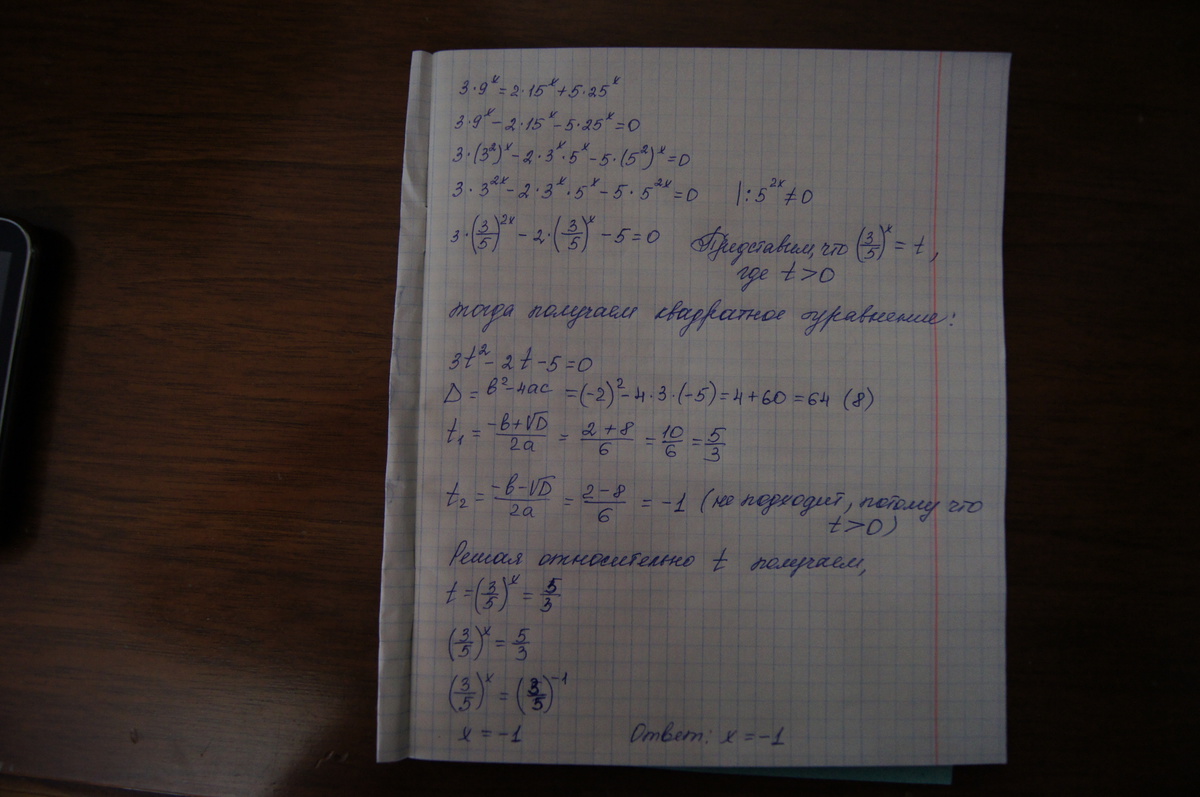 3·9^x=2·15^x+5·25^x
3·9^x-2·15^x-5·25^x=0
3·(3^2)^x-2·3^x·5^x-5·(5^2)^x=0
3·3^{2x}-2·3^x·5^x-5·5^{2x}=0 |:5^{2x}≠0
3·(3/5)^{2x}-2·(3/5)^x-5=0 Представим, что (3/5)^x=t,
где t>0
тогда получаем квадратное уравнение:
3t^2-2t-5=0
D=b^2-4ac=(-2)^2-4·3·(-5)=4+60=64 (8)
t_1=(-b+√D)/2a=(2+8)/6=10/6=5/3
t_2=(-b-√D)/2a=(2-8)/6=-1 (не подходит, потому что
t>0)
Решая относительно t получаем,
t=(3/5)^x=5/3
(3/5)^x=5/3
(3/5)^x=(3/5)^{-1}
x=-1 Ответ: x=-1